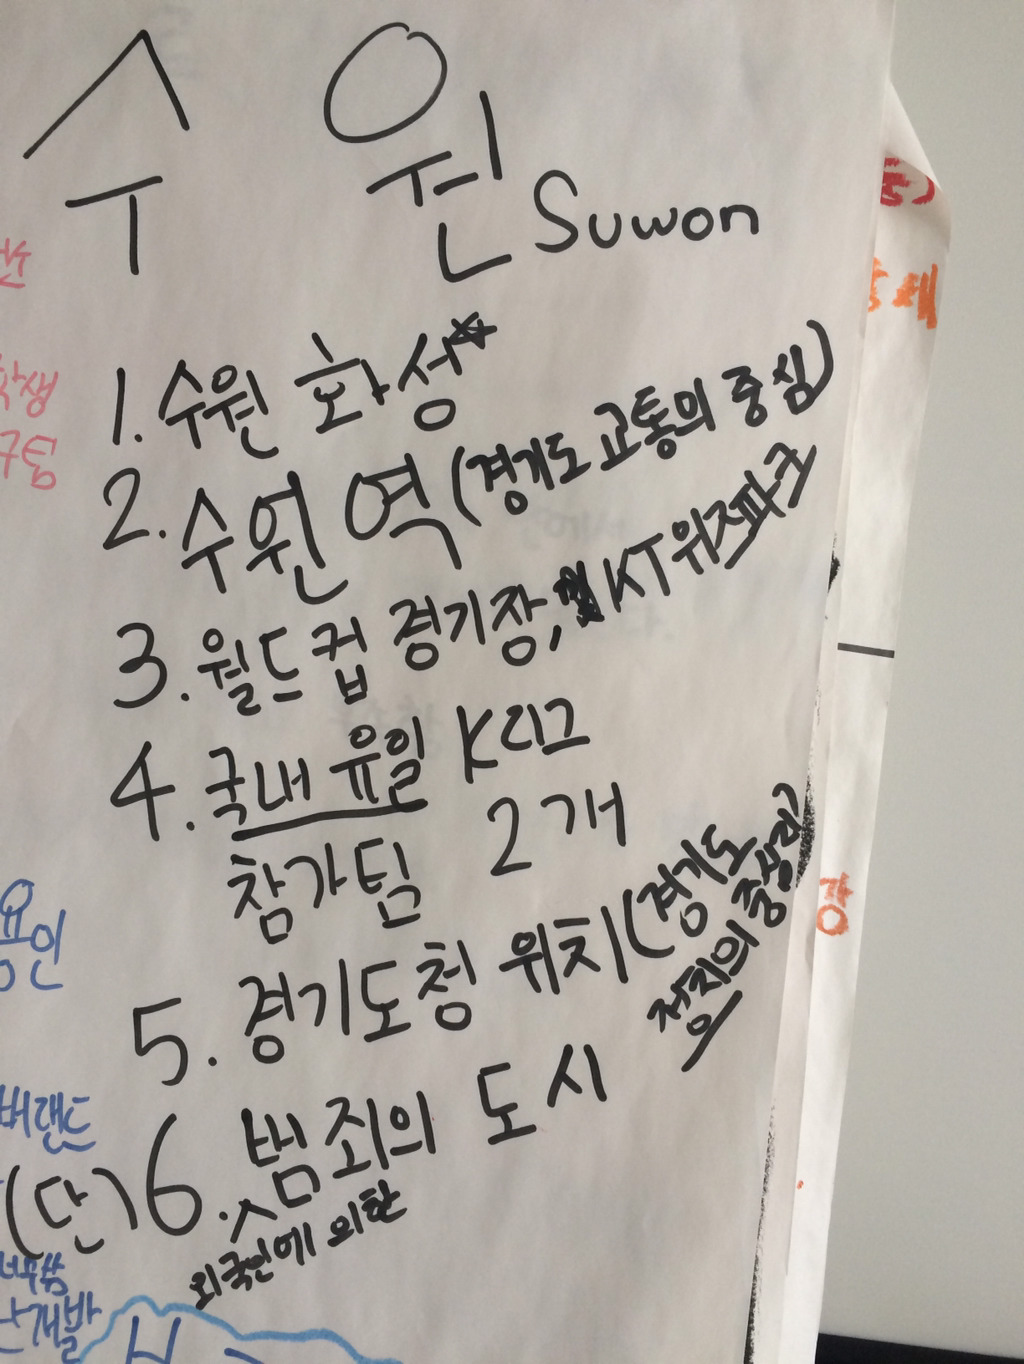 수원 Suwon
1. 수원 화성
2. 수원역 (경기도 교통의 중심)
3. 월드컵 경기장, KT위즈파크
4. 국내 유일 K리그
참가팀 2개
5. 경기도청 위치 (경기도
정치의 중심지)
(단) 6. 범죄의 도시
외국인에 의한
용인